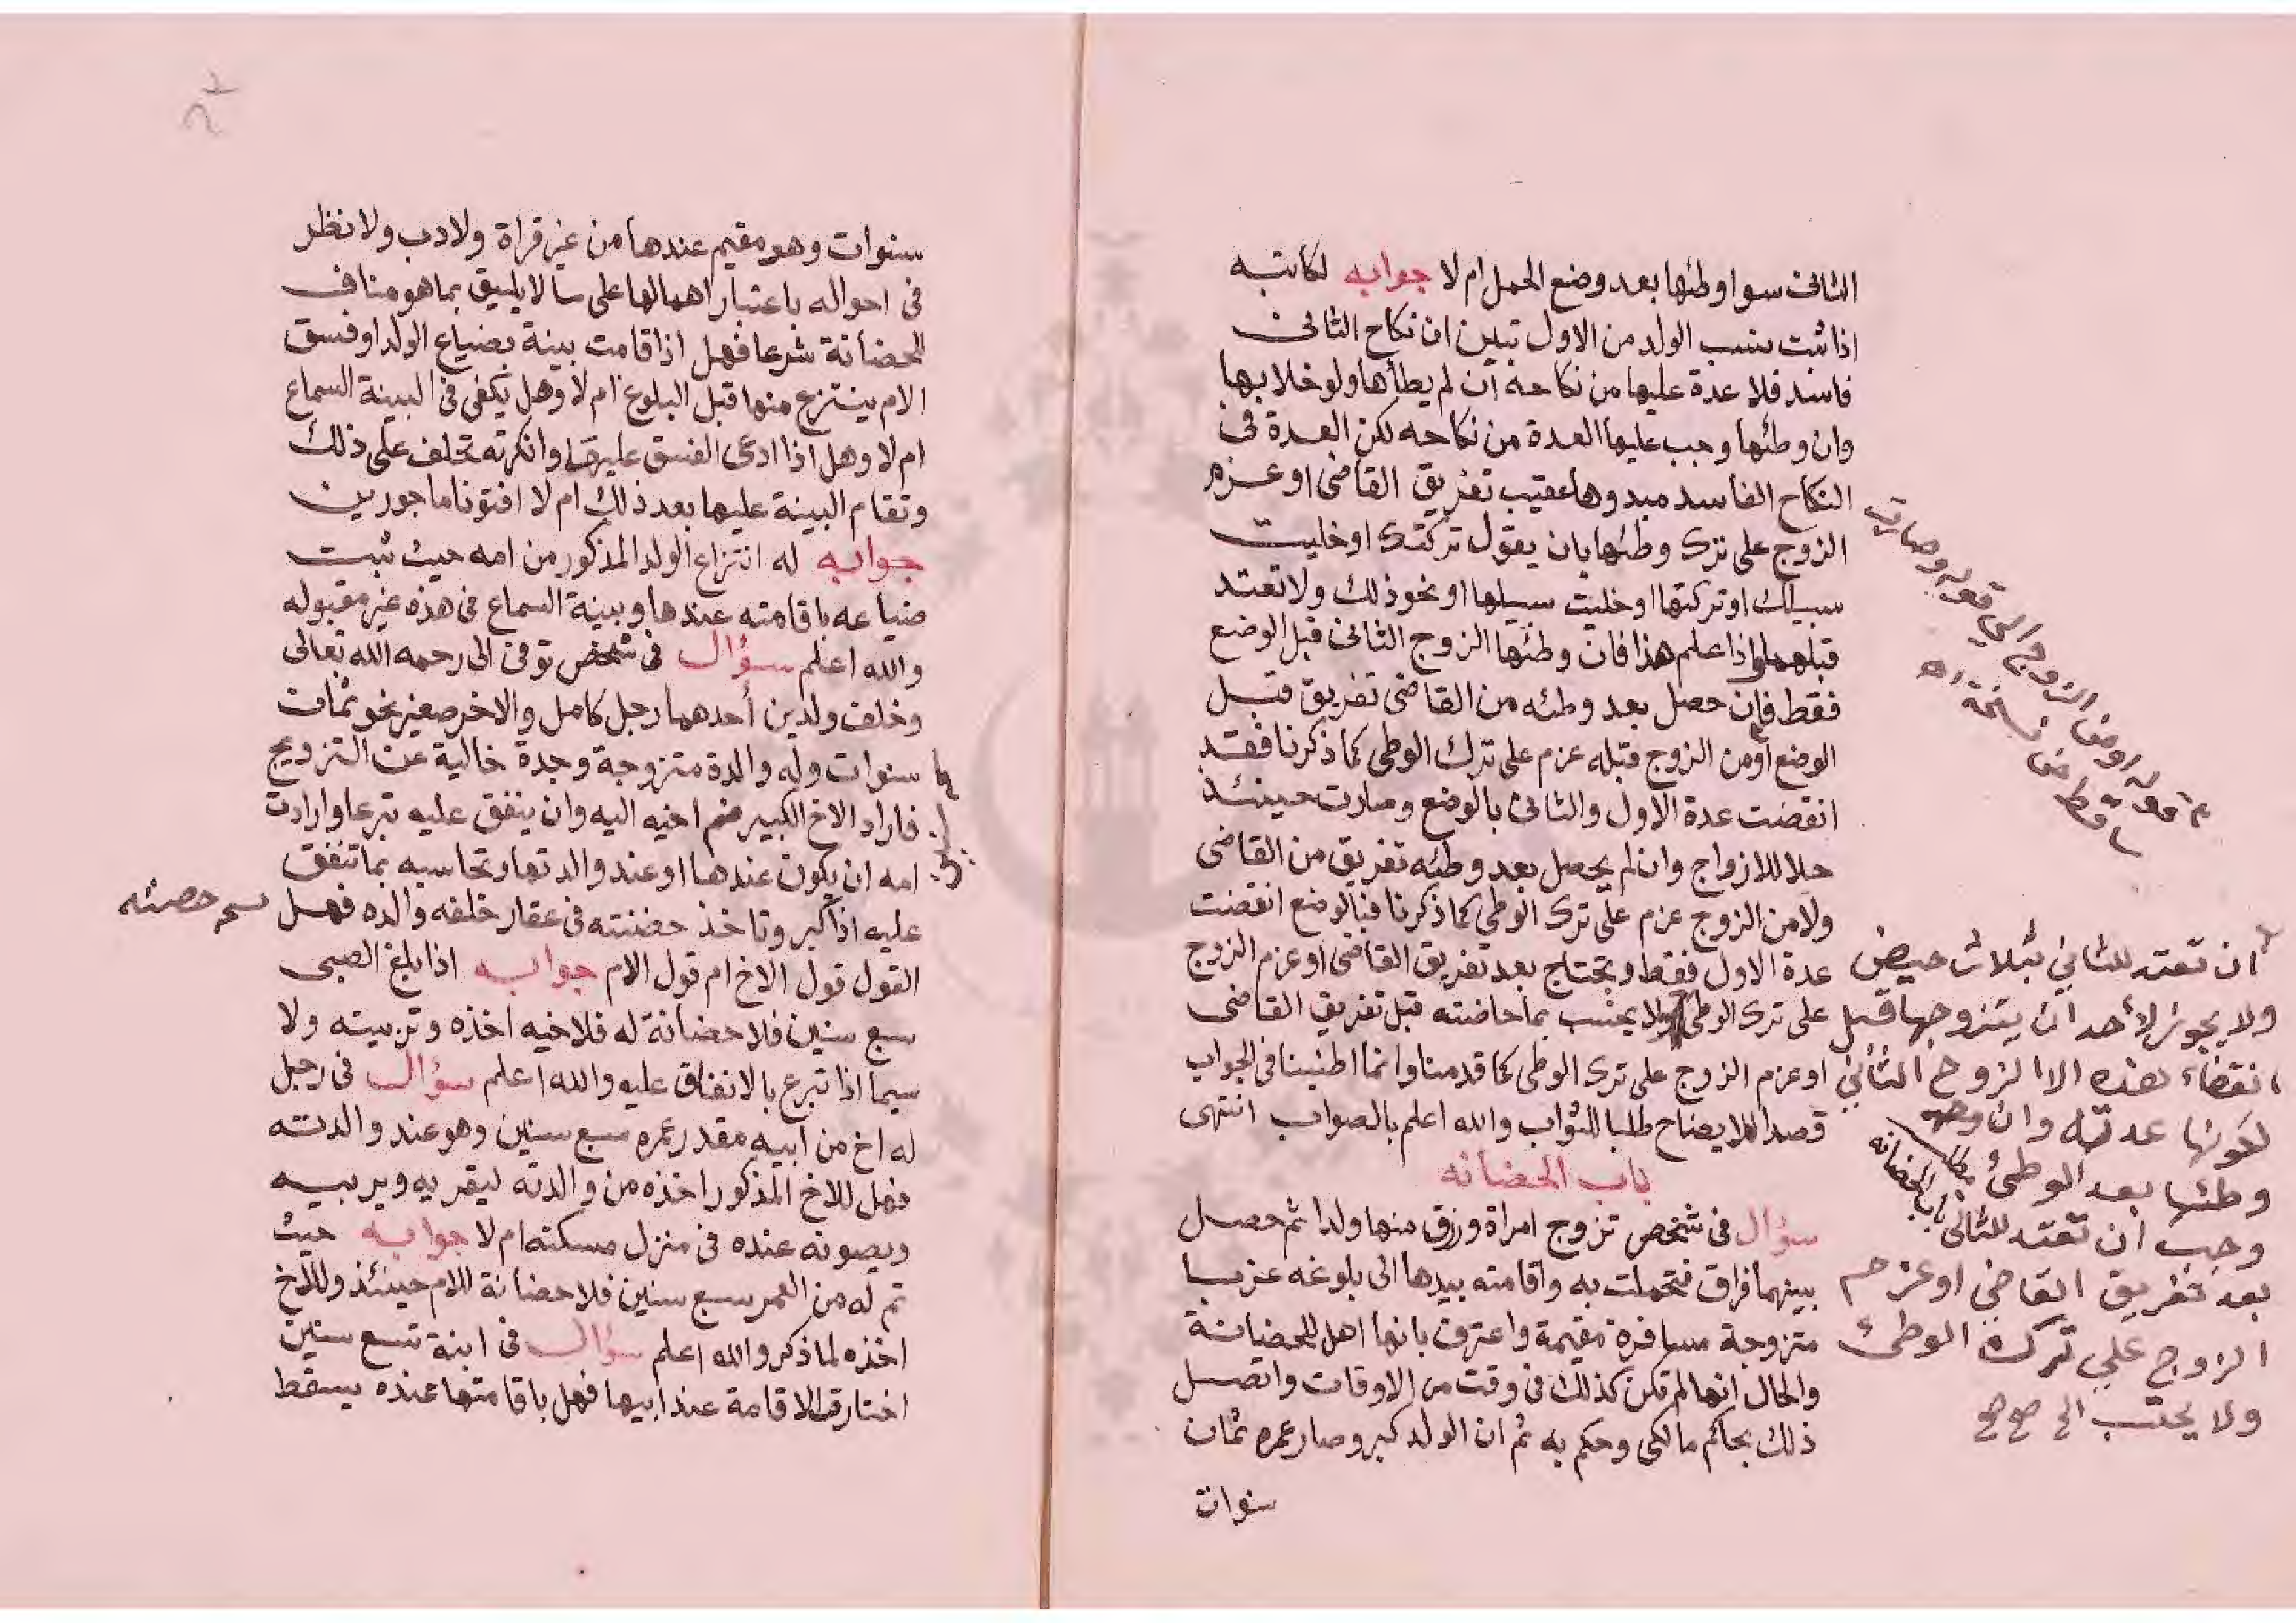 الثانى سوا وطئها بعد وضع الحمل ام لا جوابه لكاتبه
اذا ثبت نسب الولد من الاول تبين ان نكاح الثانى
فاسد فلا عدة عليها من نكاحه ان لم يطأها ولو خلا بها
وان وطئها وجب عليها العدة من نكاحه لكن العدة فى
النكاح الفاسد مبدوها عقيب تفريق القاضى او عزم
الزوج على ترك وطئها بان يقول تركتك او خليت
سبيلك او تركتها او خليت سبيلها او نحو ذلك ولا تعتد
قبلهما واذا علم هذا فان وطئها الزوج الثانى قبل الوضع
فقط فان حصل بعد وطئه من القاضى تفريق قبل
الوضع او من الزوج قبله عزم على ترك الوطى كما ذكرنا فقد
انقضت عدة الاول والثانى بالوضع وصارت حينئذ
حلا للازواج وان لم يحصل بعد وطئه تفريق من القاضى
ولا من الزوج عزم على ترك الوطى كما ذكرنا فبالوضع انقضت
عدة الاول فقط وتحتاج بعد تفريق القاضى او عزم الزوج
على ترك الوطى ولا يحتسب بما حاضته قبل تفريق القاضى
او عزم الزوج على ترك الوطى كما قدمنا وانما اطنبنا فى الجواب
قصدا للايضاح طلبا للثواب والله اعلم بالصواب انتهى
باب الحضانه
سؤال فى شخص تزوج امراة ورزق منها ولدا ثم حصل
بينهما فراق فتحملت به واقامته بيدها الى بلوغه عزبا
متزوجة مسافرة مقيمة واعترف بانها اهل للحضانة
والحال انها لم تكن كذلك فى وقت من الاوقات واتصل
ذلك بحاكم مالكى وحكم به ثم ان الولد كبر وصار عمره ثمان
سنوات
ان تعتد للثاني بثلاث حيض
ولا يجوز لأحد ان يتزوجها قبل
انقضاء هذه الا الزوج الثاني
لكونها عدته وان
وطئها بعد الوطئ
وجب ان تعتد للثانى
بعد تفريق القاضي او عزم
الزوج علي ترك الوطئ
ولا يحتسب الى صح صح
باب الحضانه
سنوات وهو مقيم عندها من غير قراة ولا دب ولا نظر
فى احواله باعتبار اهمالها على ما لا يليق بما هو مناف
للحضانة شرعا فهل اذا قامت بينة بضياع الولد او فسق
الام ينتزع منها قبل البلوغ ام لا وهل يكفى فى البينة السماع
ام لا وهل اذا ادعى الفسق عليها وانكرته تحلف على ذلك
وتقام البينة عليها بعد ذلك ام لا افتونا ماجورين
جوابه له انتزاع الولد المذكور من امه حيث ثبت
ضياعه باقامته عندها وبينة السماع فى هذه غير مقبوله
والله اعلم سؤال فى شخص توفى الى رحمه الله تعالى
وخلف ولدين أحدهما رجل كامل والاخر صغير نحو ثمان
سنوات وله والدة متزوجة وجدة خالية عن التزويج
فاراد الاخ الكبير ضم اخيه اليه وان ينفق عليه تبرعا وارادت
امه ان يكون عندها او عند والدتها وتحاسبه بما تنفق
عليه اذا كبر وتاخذ حضنته فى عقار خلفه والده فهل
حصته
القول قول الاخ ام قول الام جوابه اذا بلغ الصبى
سبع سنين فلا حضانة له فلاخيه اخذه وتربيته ولا
سيما اذا تبرع بالانفاق عليه والله اعلم سؤال فى رجل
له اخ من ابيه مقدر عمره سبع سنين وهو عند والدته
فهل للاخ المذكور اخذه من والدته ليقريه ويربيه
ويصونه عنده فى منزل مسكنه ام لا جوابه حيث
تم له من العمر سبع سنين فلا حضانة للام حينئذ وللاخ
اخذه لما ذكر والله اعلم سؤال فى ابنة تسع سنين
اختارت الاقامة عند ابيها فهل باقامتها عنده يسقط